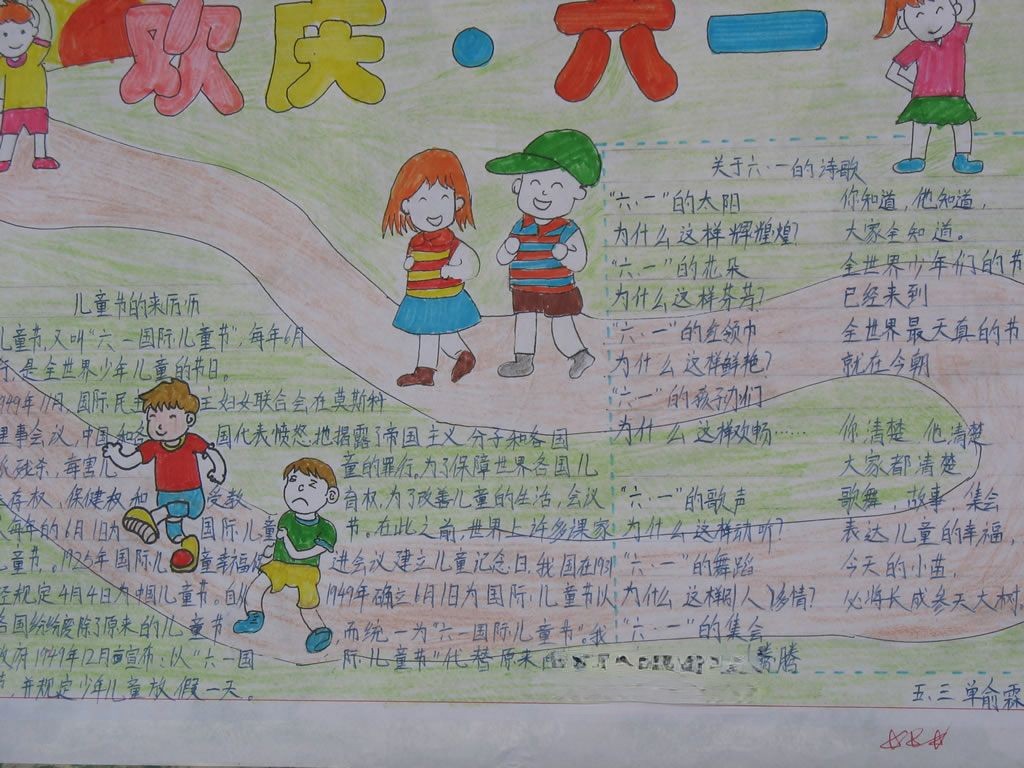 欢庆·六一
儿童节的来历
儿童节,又叫"六一国际儿童节",每年6月
是全世界少年儿童的节日。
1949年11月,国际民主妇女联合会在莫斯科
理事会议,中国和各国代表愤怒地揭露了帝国主义分子和各国
残杀、毒害儿童的罪行。为了保障世界各国儿
存权、保健权和受教育权,为了改善儿童的生活,会议
每年的6月1日为国际儿童节。在此之前,世界上许多课家
儿童节。1925年国际儿童幸福促进会议建立儿童记念日,我国在193
规定4月4日为中国儿童节。自从1949年确立6月1日为国际儿童节以
各国纷纷废除了原来的儿童节而统一为"六一国际儿童节"。我
政府1949年12月宣布:以"六一国际儿童节"代替原来
节,并规定少年儿童放假一天。
关于六.一的诗歌
"六.一"的太阳
为什么这样辉煌煌?
"六.一"的花朵
为什么这样芬芳?
"六.一"的红领巾
为什么这样鲜艳?
"六.一"的孩子们
为什么这样欢畅……
"六.一"的歌声
为什么这样动听?
"六.一"的舞蹈
为什么这样引人多情?
"六.一"的集会
赛腾
你知道,他知道,
大家全知道。
全世界少年们的节
已经来到
全世界最天真的节
就在今朝
你清楚他清楚
大家都清楚
歌舞,故事,集会
表达儿童的幸福,
今天的小苗,
必将长成参天大树。
五.三单俞霖